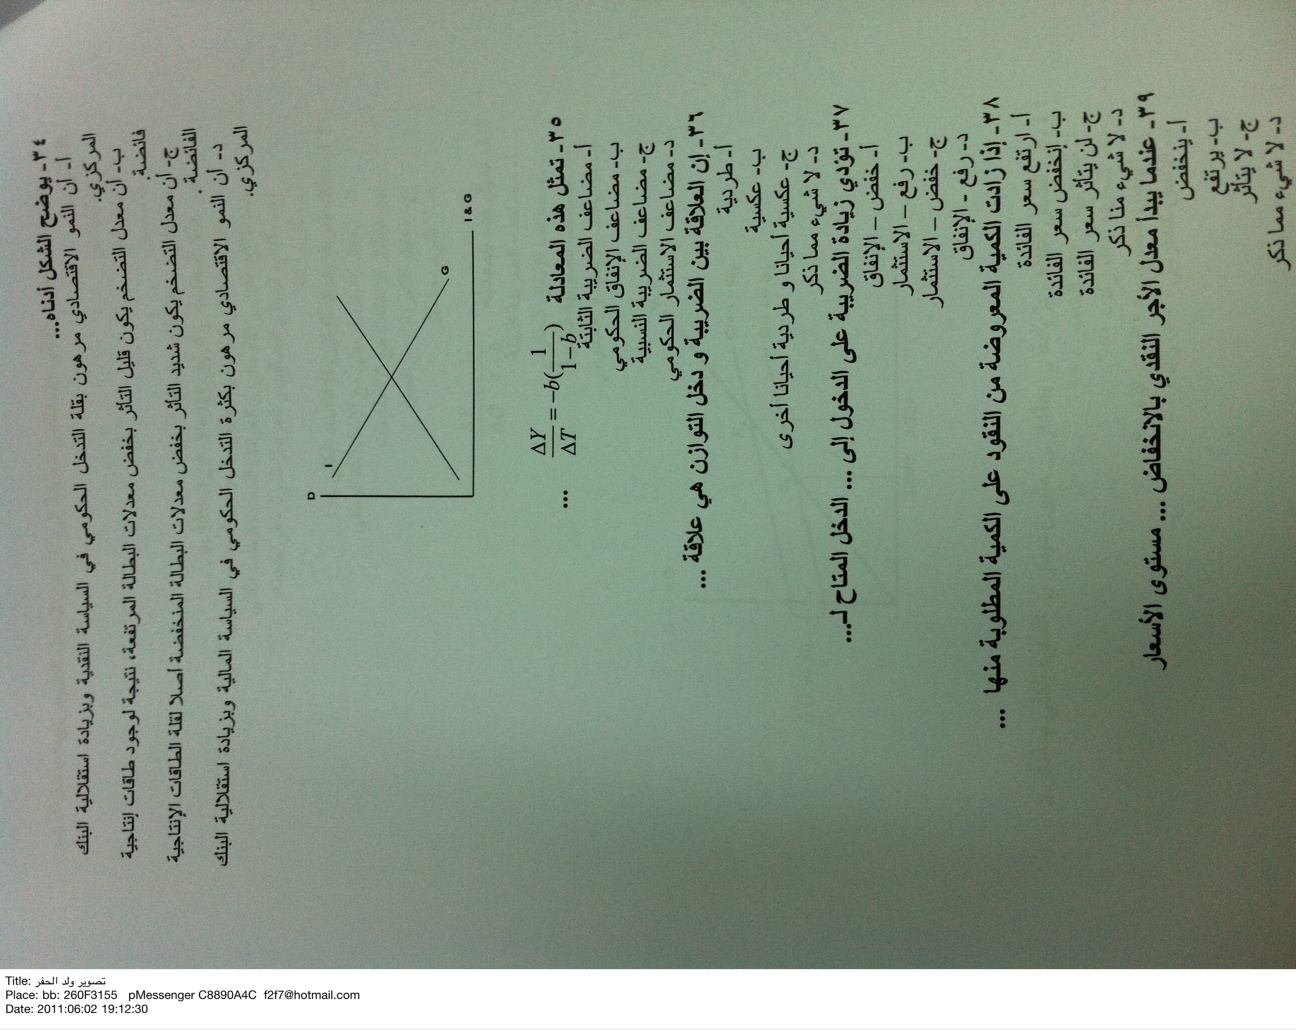 ٣٤- يوضح الشكل أدناه...
أ- أن النمو الاقتصادي مرهون بقلة التدخل الحكومي في السياسة النقدية وبزيادة استقلالية البنك
المركزي.
ب- أن معدل التضخم يكون قليل التأثر بخفض معدلات البطالة المرتفعة، نتيجة لوجود طاقات إنتاجية
فائضة.
ج- أن معدل التضخم يكون شديد التأثر بخفض معدلات البطالة المنخفضة أصلا لقلة الطاقات الإنتاجية
الفائضة.
د- أن النمو الاقتصادي مرهون بكثرة التدخل الحكومي في السياسة المالية وبزيادة استقلالية البنك
المركزي.
D
I
G
I & G
٣٥- تمثل هذه المعادلة ΔY/ΔT = -b(1/1-b) ...
أ- مضاعف الضريبة الثابتة
ب- مضاعف الإنفاق الحكومي
ج- مضاعف الضريبة النسبية
د- مضاعف الاستثمار الحكومي
٣٦- إن العلاقة بين الضريبة و دخل التوازن هي علاقة ...
أ- طردية
ب- عكسية
ج- عكسية أحيانا و طردية أحيانا أخرى
د- لا شيء مما ذكر
٣٧- تؤدي زيادة الضريبة على الدخول إلى ... الدخل المتاح لـ...
أ- خفض – الإنفاق
ب- رفع – الاستثمار
ج- خفض – الاستثمار
د- رفع - الإنفاق
٣٨- إذا زادت الكمية المعروضة من النقود على الكمية المطلوبة منها ...
أ- ارتفع سعر الفائدة
ب- إنخفض سعر الفائدة
ج- لن يتأثر سعر الفائدة
د- لا شيء منا ذكر
٣٩- عندما يبدأ معدل الأجر النقدي بالانخفاض ... مستوى الأسعار
أ- ينخفض
ب- يرتفع
ج- لا يتأثر
د- لا شيء مما ذكر
Title: تصوير ولد الحفر
Place: bb: 260F3155 pMessenger C8890A4C f2f7@hotmail.com
Date: 2011:06:02 19:12:30